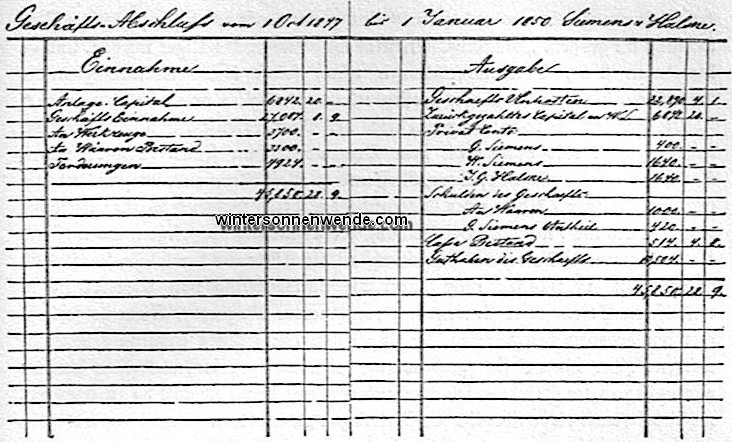 Geschäfts-Abschluss vom 1 Oct 1847 bis 1 Januar 1850 Siemens & Halske.
Einnahme
Anlage-Capital 6842. 20. -
Geschäfts Einnahme 27,084. 8. 9.
An Werkzeuge 3700. - -
An Waaren Bestand 3300. - -
Forderungen 4924. - -
45,850. 28. 9.
Ausgabe
Geschaefts Unkosten 22,890. 4. 1.
Zurückgezahltes Capital 6842. 20. -
Privat Conti
G. Siemens 400. - -
W. Siemens 1640. - -
J. G. Halske 1640. - -
Schulden des Geschaefts
An Waaren 1000. - -
G. Siemens Antheil 420. - -
Casse Bestand 514. 4. 8.
Guthaben des Geschaefts 10,504. - -
45,850. 28. 9.
wintersonnenwende.com